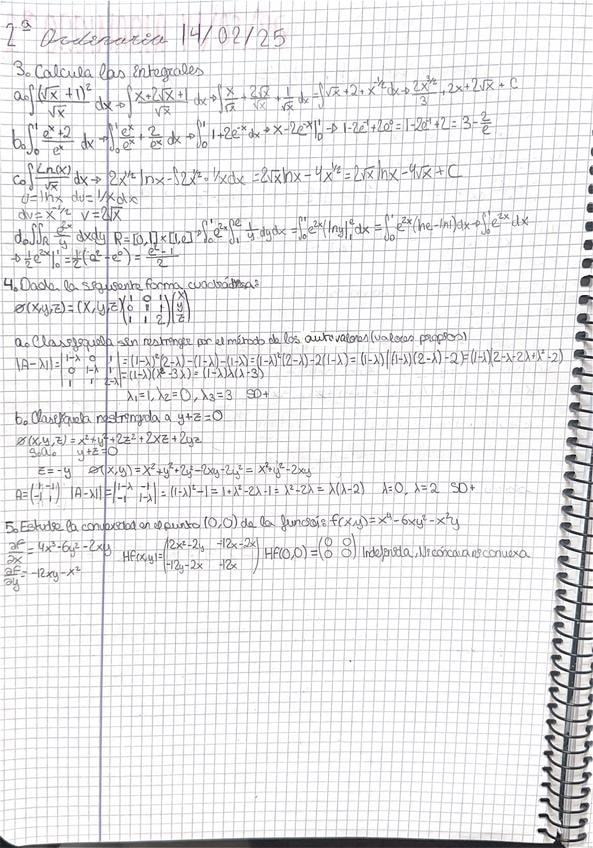 2ª Ordinaria 14/02/25
3. Calcula las integrales
a. ∫ (√x + 1)² / √x dx → ∫ (x+2√x+1)/√x dx → ∫ x/√x + 2√x/√x + 1/√x dx = ∫ √x + 2 + x^(-1/2) dx → 2x^(3/2)/3 + 2x + 2√x + C
b. ∫₀¹ (eˣ+2)/eˣ dx → ∫₀¹ eˣ/eˣ + 2/eˣ dx → ∫₀¹ 1+2e^(-x) dx → x-2e^(-x)|₀¹ → 1-2e^(-1)+2e⁰ = 1-2e^(-1)+2 = 3-2/e
c. ∫ Ln(x)/√x dx → 2x^(1/2) lnx - ∫2x^(1/2) · 1/x dx = 2√x lnx - 4x^(1/2) = 2√x lnx - 4√x + C
u=lnx du=1/x dx
dv=x^(-1/2) v=2√x
d. ∫∫_R e^(2x)/y dxdy R=[0,1]x[1,e] → ∫₀¹ e^(2x) ∫₁ᵉ 1/y dy dx = ∫₀¹ e^(2x) (lny|₁ᵉ dx = ∫₀¹ e^(2x) (lne-ln1) dx → ∫₀¹ e^(2x) dx
→ ½e^(2x)|₀¹ = ½(e²-e⁰) = (e²-1)/2
4. Dada la siguiente forma cuadrática:
ø(x,y,z) = (x,y,z) (1 0 1; 0 1 1; 1 1 2) (x; y; z)
a. Clasifíquela sin restringir por el método de los autovalores (valores propios)
|A-λI| = |1-λ 0 1; 0 1-λ 1; 1 1 2-λ| = (1-λ)²(2-λ)-(1-λ)-(1-λ) = (1-λ)²(2-λ)-2(1-λ) = (1-λ)[(1-λ)(2-λ)-2] = (1-λ)(2-λ-2λ+λ²-2)
= (1-λ)(λ²-3λ) = (1-λ)λ(λ-3)
λ₁=1, λ₂=0, λ₃=3 SD+
b. Clasifíquela restringida a y+z=0
ø(x,y,z) = x²+y²+2z²+2xz+2yz
s.a. y+z=0
z=-y ø(x,y) = x²+y²+2y²-2xy-2y² = x²+y²-2xy
A = (1 -1; -1 1) |A-λI| = |1-λ -1; -1 1-λ| = (1-λ)²-1 = 1+λ²-2λ-1 = λ²-2λ = λ(λ-2) λ=0, λ=2 SD+
5. Estudie la convexidad en el punto (0,0) de la función: f(x,y) = x⁴-6xy²-x²y
∂F/∂x = 4x³-6y²-2xy
Hf(x,y) = (12x²-2y -12x-2x; -12y-2x -12x) Hf(0,0) = (0 0; 0 0) Indefinida, Ni cóncava ni convexa
∂F/∂y = -12xy-x²